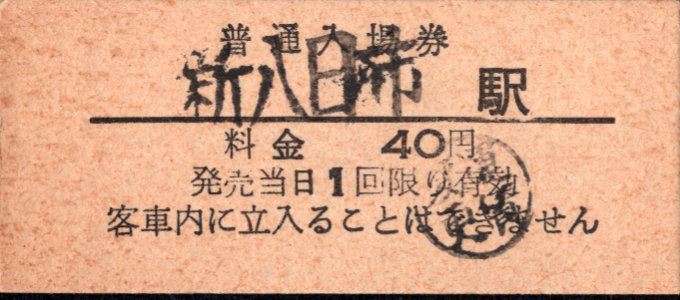 普通入場券
新八日市駅
料金 40円
発売当日1回限り有効
客車内に立入ることはできません